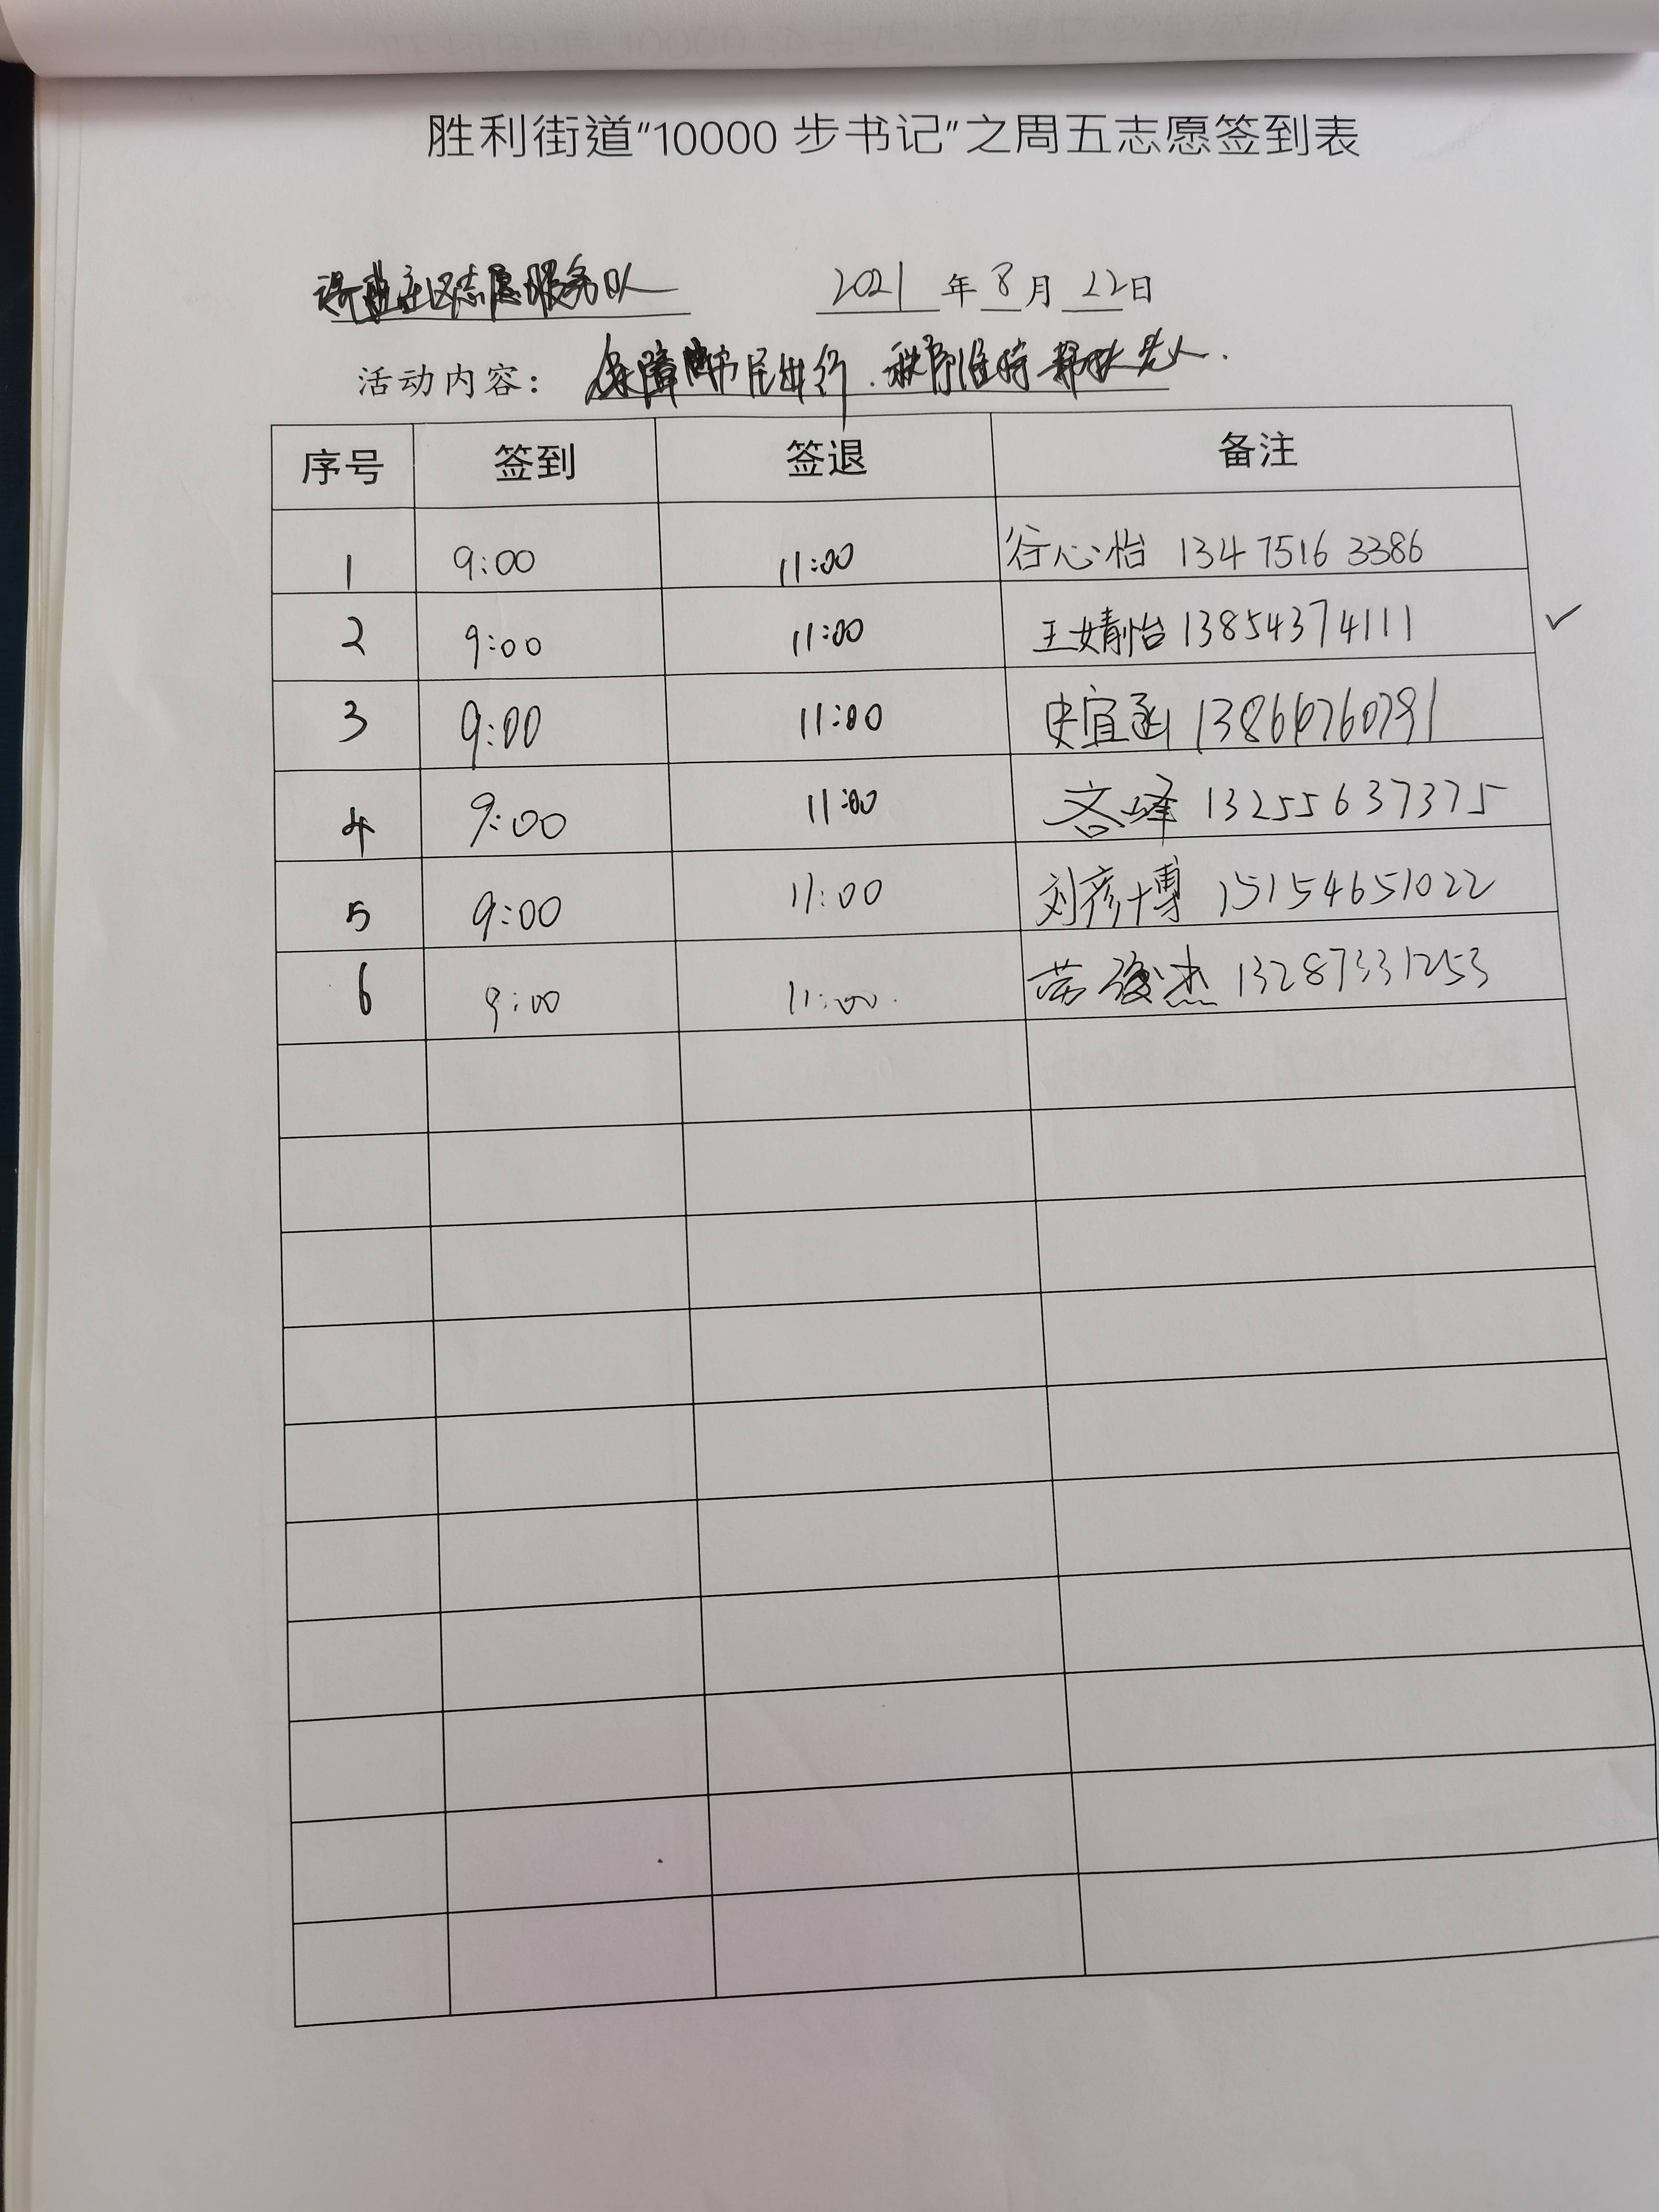 胜利街道“10000 步书记”之周五志愿签到表
社区志愿服务队 2021 年 8 月 22 日
活动内容: 保障市民出行.秩序维持 帮扶老人.
序号 签到 签退 备注
1 9:00 11:00 行心怡 134 7516 3386
2 9:00 11:00 王婧怡 13854374111 ✓
3 9:00 11:00 史宜函
4 9:00 11:00 峰 13255637375
5 9:00 11:00 刘彦博 15154651022
6 9:00 11:00 俊杰 13287331253